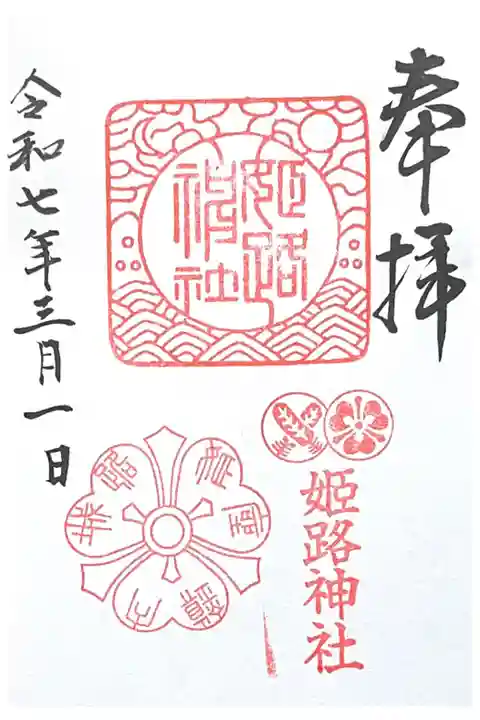 奉拝
姫路
神社
姫路神社
令和七年三月一日